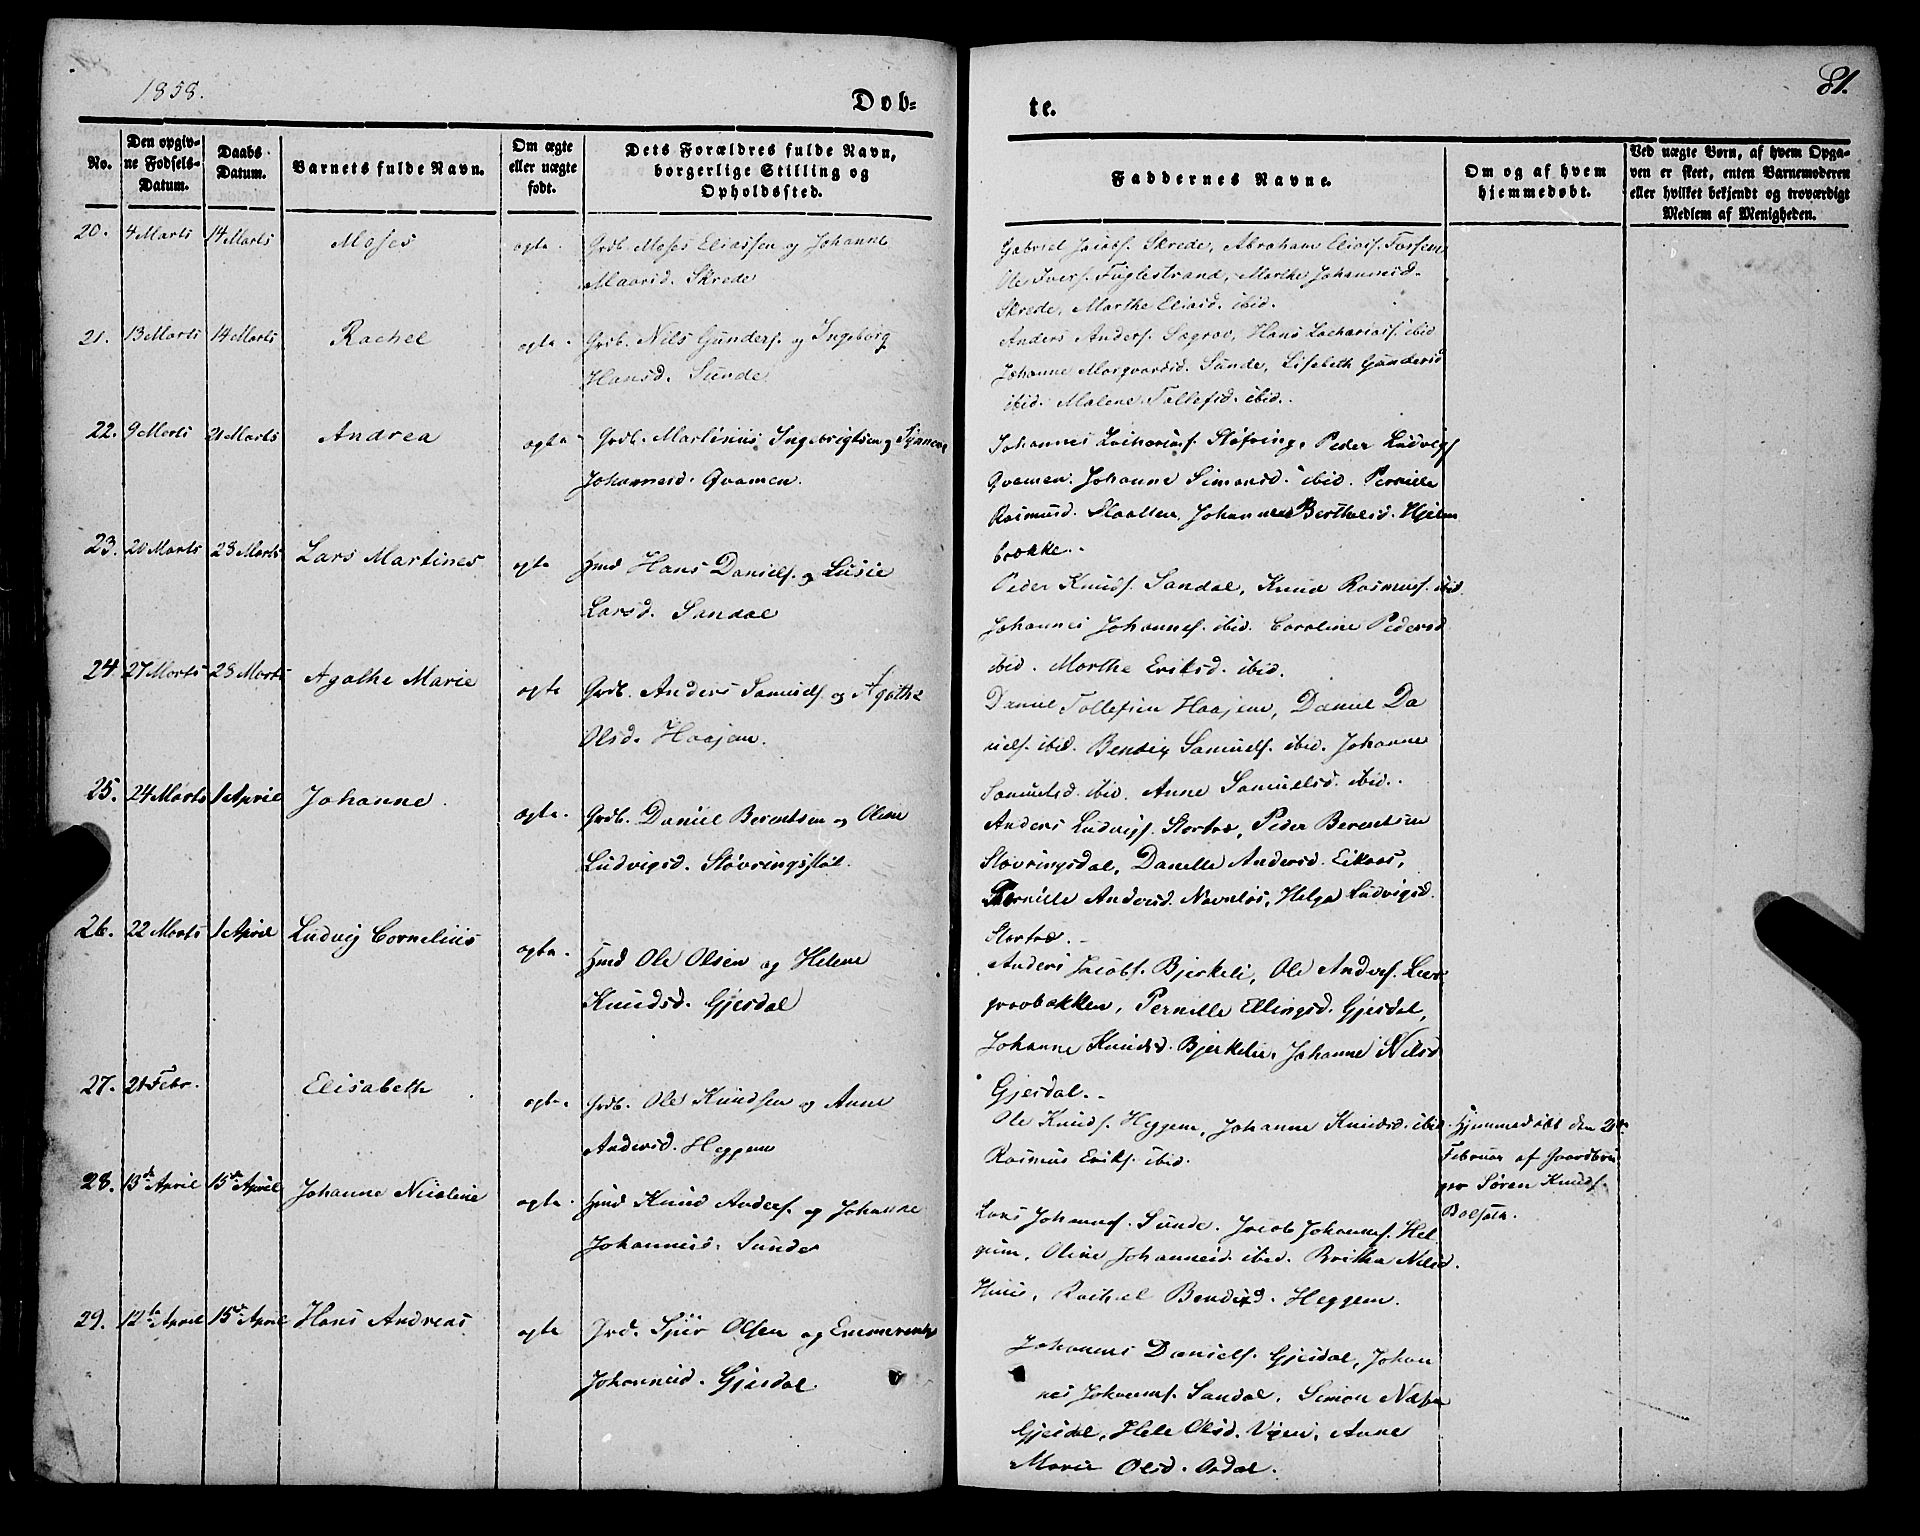 1858.
81.
Døb=
te.
No.
Den opgiv-
ne Fødsels-
Datum.
Daabs
Datum.
Barnets fulde Navn.
Om ægte
eller uægte
født.
Dets Forældres fulde Navn,
borgerlige Stilling og
Opholdssted.
Faddernes Navne.
Om og af hvem
hjemmedøbt.
Ved uægte Børn, af hvem Opga-
ven er skeet, enten Barnemoderen
eller hvilket bekjendt og troværdigt
Medlem af Menigheden.
20. 4 Marts 14 Marts Moses ægte. Grdb. Moses Eliassen og Johanne
Skrede
Gabriel Jacobs. Skrede, Abraham Elias.
Ole Ivers. Fuglestrand, Marthe Johannesd.
Skrede, Marthe Eliasd. ibid.
21. 13 Marts 14 Marts Rachel ægte. Grdb. Nils Gunders. og Ingeborg
Hansd. Sunde
Anders Anders. Sægrov, Hans Zacharias. ibid
Johanne Sunde, Lisebeth Gundersd
ibid. Malene Tollefsd. ibid.
22. 9 Marts 21 Marts Andrea ægte Grdb. Martinus Ingebrigtsen og Synneve
Johannesd. Qvamen.
Johannes Zacharias. Støfring, Peder Ludvigs
Qvamen. Johanne Simonsd. ibid. Pernille
Rasmusd. Johanne Berthelsd. Hjelm
brække.
23. 20 Marts 28 Marts Lars Martines ægte Hmd Hans Daniels. og Lusie
Larsd. Sandal
Peder Knuds. Sandal, Knud Rasmus. ibid
Johannes Johannes. ibid. Caroline Pedersd
ibid. Marthe Eriksd. ibid.
24. 27 Marts 28 Marts Agathe Marie ægte Grdb. Anders Samuels. og Agathe
Olsd. Haajem.
Daniel Tollefsen Haajem, Daniel Da
niels. ibid. Bendix Samuels. ibid. Johanne
Samuelsd. ibid. Anne Samuelsd. ibid.
25. 24 Marts 1 April Johanne. ægte. Grdb. Daniel Berentsen og Oline
Ludvigsd. Støvringsstøl.
Anders Ludvigs. Stortræ, Peder Berentsen
Støvringsdal, Danielle Andersd. Eikaas,
Pernille Andersd. Navnløs, Helga Ludvigsd.
Stortræ.
26. 22 Marts 1 April Ludvig Cornelius ægte. Hmd Ole Olsen og Helene
Knudsd. Gjesdal
Anders Jacobs. Bjerkeli, Ole Anders.
Pernille Ellingsd. Gjesdal,
Johanne Knudsd. Bjerkelie, Johanne Nilsd
Gjesdal.
27. 21 Febr. Elisabeth ægte. Grdb. Ole Knudsen og Anne
Andersd. Heggem
Ole Knuds. Heggem, Johanne Knudsd. ibid.
Rasmus Eriks. ibid.
Hjemmedøbt den 21
Februar af Gaardbru
ger Søren Knuds.
28. 13de April 15de April Johanne Nicoline ægte. Hmd Knud Anders. og Johanne
Johannesd. Sunde
Lars Johannes. Sunde. Jacob Johannes. Hel
gum, Oline Johannesd. ibid. Britha Nilsd.
Huus, Rachel Heggem.
29. 12te April 15de April Hans Andreas ægte Grd. Sjur Olsen og Emmerente
Johannesd. Gjesdal
Johannes Daniels. Gjesdal, Johan
nes Johannes. Sandal, Simon
Gjesdal, Hele Olsd. Anne
Marie Olsd.